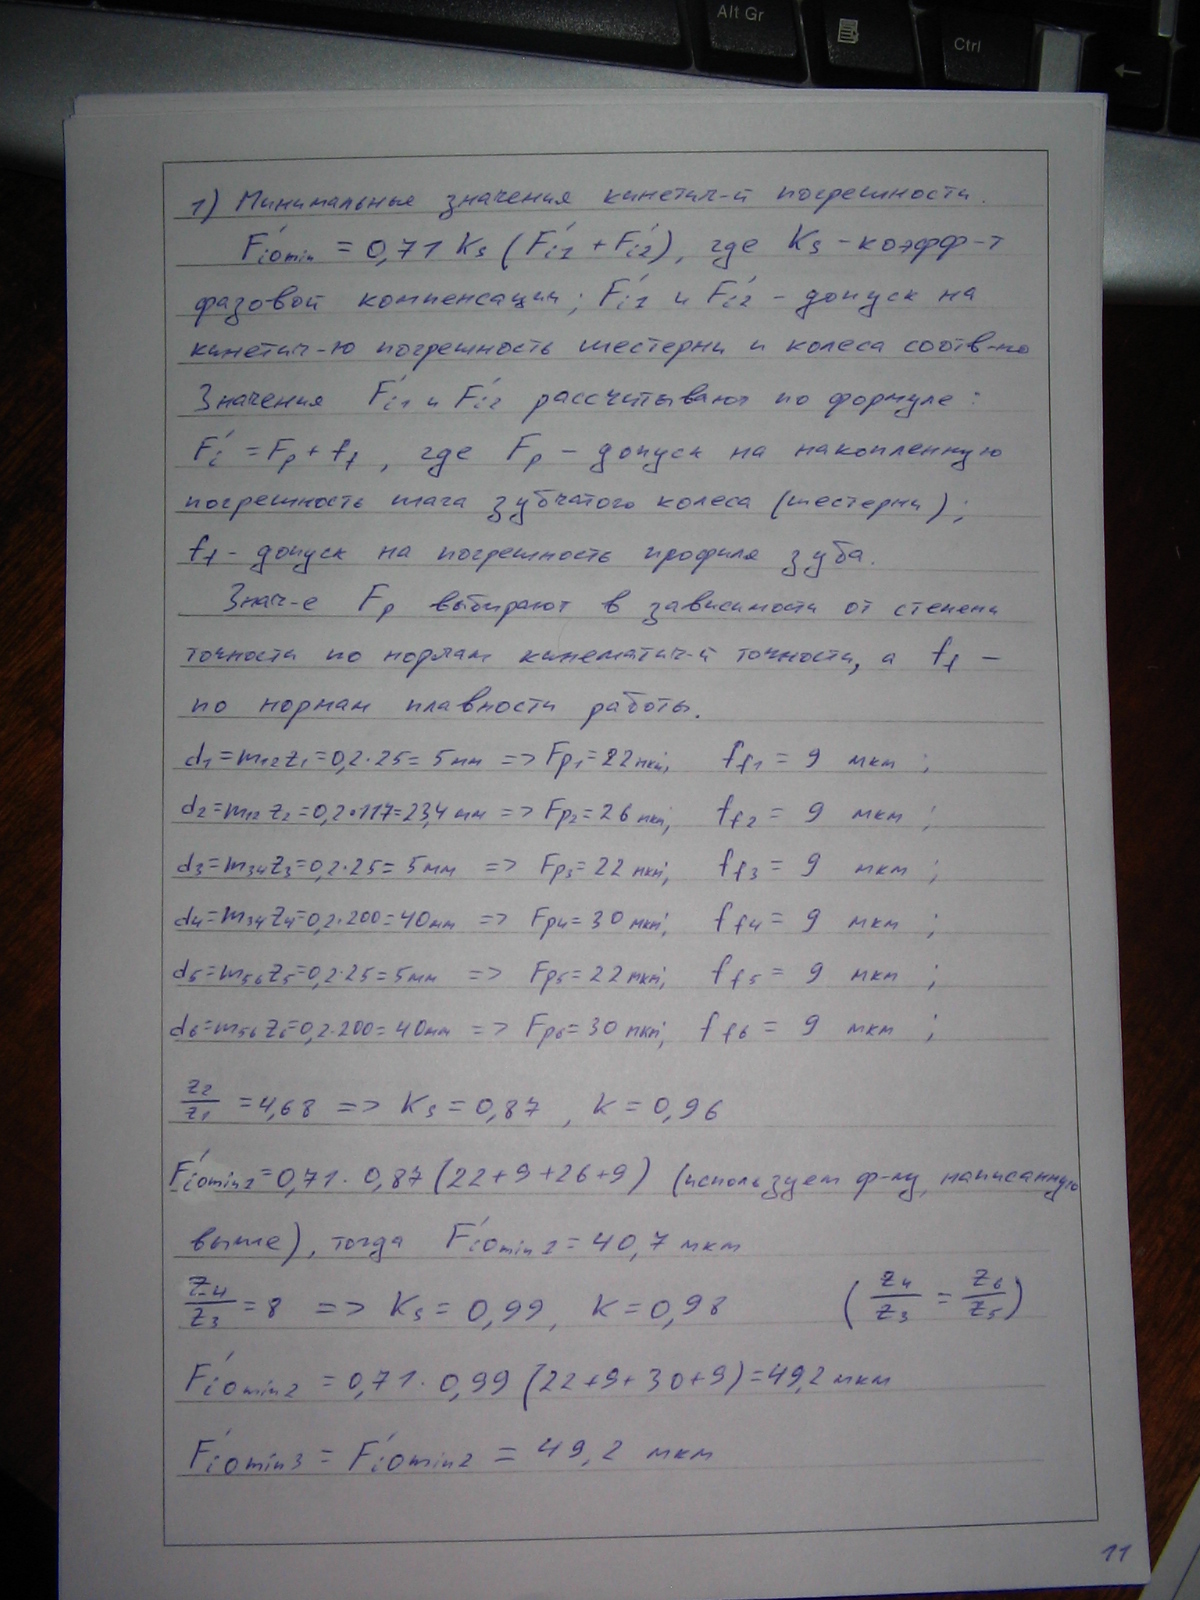 Alt Gr
Ctrl
←
1) Минимальные значения кинетич-й погрешности.
F'i0min = 0,71 Ks (F'i1 + F'i2), где Ks - коэфф-т
фазовой компенсации; F'i1 и F'i2 - допуск на
кинетич-ю погрешность шестерни и колеса соотв-но
Значения F'i1 и F'i2 рассчитывают по формуле:
F'i = Fp + ff, где Fp - допуск на накопленную
погрешность шага зубчатого колеса (шестерни);
ff - допуск на погрешность профиля зуба.
Знач-е Fp выбирают в зависимости от степени
точности по нормам кинематич-й точности, а ff -
по нормам плавности работы.
d1=m12z1=0,2·25= 5мм => Fp1=22мкм; ff1 = 9 мкм ;
d2=m12z2=0,2·117=23,4 мм => Fp2=26 мкм; ff2 = 9 мкм ;
d3=m34z3=0,2·25= 5мм => Fp3=22 мкм; ff3 = 9 мкм ;
d4=m34z4=0,2·200=40мм => Fp4=30 мкм; ff4 = 9 мкм ;
d5=m56z5=0,2·25=5мм => Fp5=22мкм; ff5 = 9 мкм ;
d6=m56z6=0,2·200=40мм => Fp6=30 мкм; ff6 = 9 мкм ;
z2/z1 = 4,68 => Ks = 0,87 , K = 0,96
F'i0min1=0,71 · 0,87 (22+9+26+9) (используем ф-лу, написанную
выше), тогда F'i0min1=40,7 мкм
z4/z3 = 8 => Ks = 0,99, K = 0,98 (z4/z3 = z6/z5)
F'i0min2 = 0,71 · 0,99 (22+9+30+9)=49,2 мкм
F'i0min3 = F'i0min2 = 49,2 мкм
11